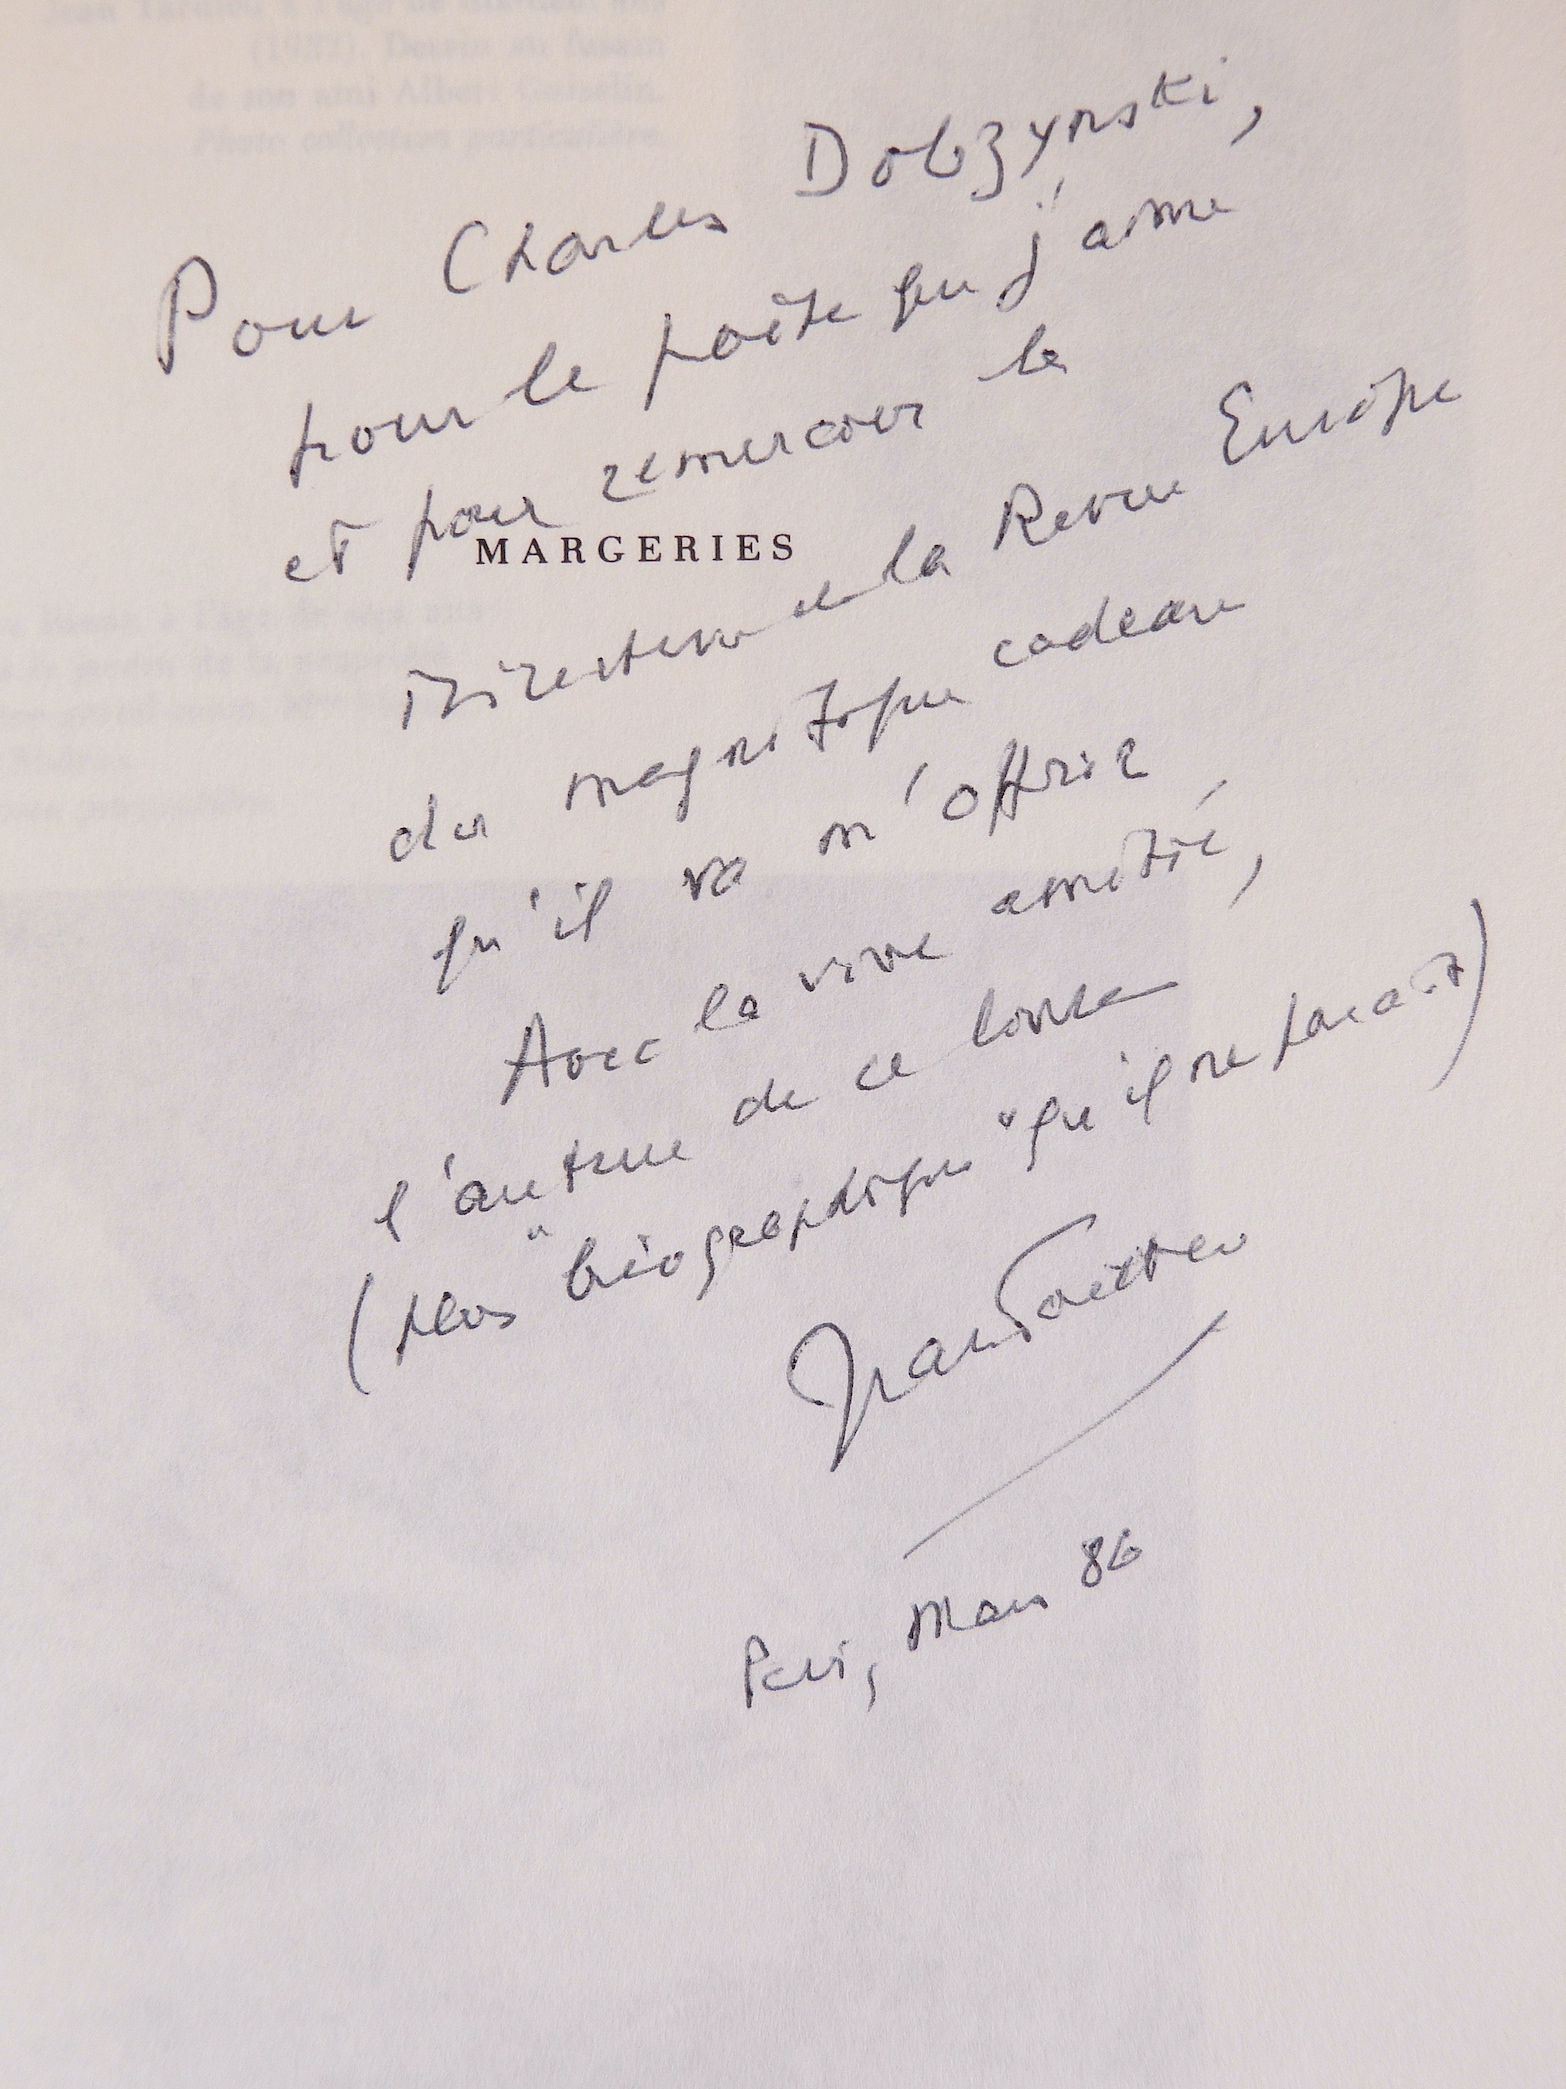 Pour Charles Dobzynski,
pour le poète que j'aime
et pour remercier le
MARGERIES
Directeur de la Revue Europe
du magnifique cadeau
qu'il va m'offrir
Avec la vive amitié,
l'auteur de ce livre
(plus "biographique" qu'il ne paraît)
Jean Tardieu
Paris, Mars 86